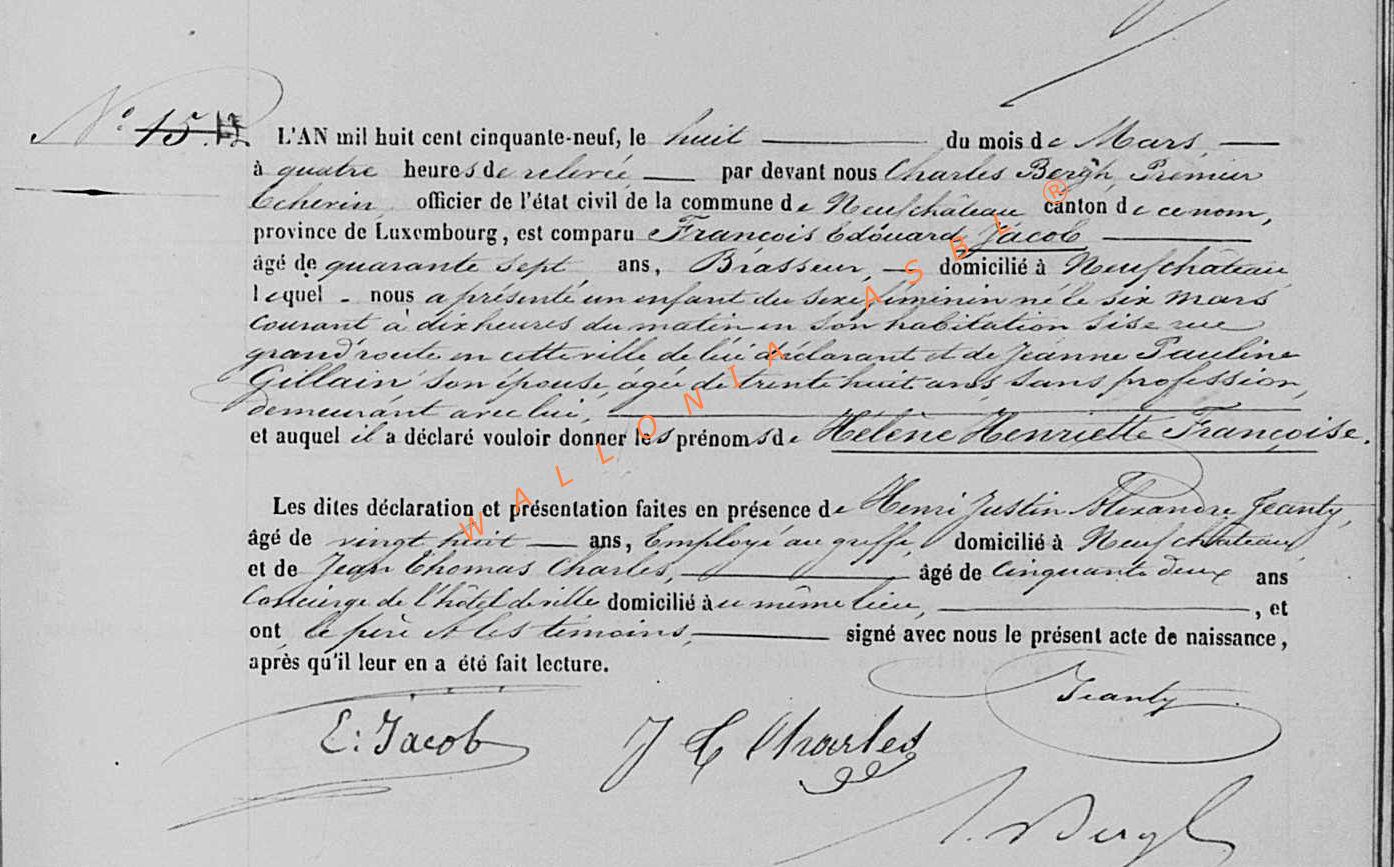 N° 15. 13
L'AN mil huit cent cinquante-neuf, le huit du mois de Mars
à quatre heures de relevée par devant nous Charles Bergh, Premier
Echevin officier de l'état civil de la commune de Neufchâteau canton de ce nom,
province de Luxembourg, est comparu François Edouard Jacob
âgé de quarante sept ans, Brasseur, domicilié à Neufchâteau
lequel nous a présenté un enfant du sexe féminin né le six mars
courant à dix heures du matin en son habitation sise rue
grand'route en cette ville de lui déclarant et de Jeanne Pauline
Gillain son épouse, âgée de trente huit ans, sans profession,
demeurant avec lui,
et auquel il a déclaré vouloir donner les prénoms de Hélène Henriette Françoise.
Les dites déclaration et présentation faites en présence de Henri Justin Alexandre Jeanty,
âgé de vingt huit ans, Employé au greffe, domicilié à Neufchateau
et de Jean Thomas Charles, âgé de Cinquante deux ans
Concierge de l'hôtel de ville domicilié à u même lieu, , et
ont le père et les témoins, signé avec nous le présent acte de naissance,
après qu'il leur en a été fait lecture.
Jeanty
E: Jacob J C Charles
Bergh
WALLONIA ASBL ®